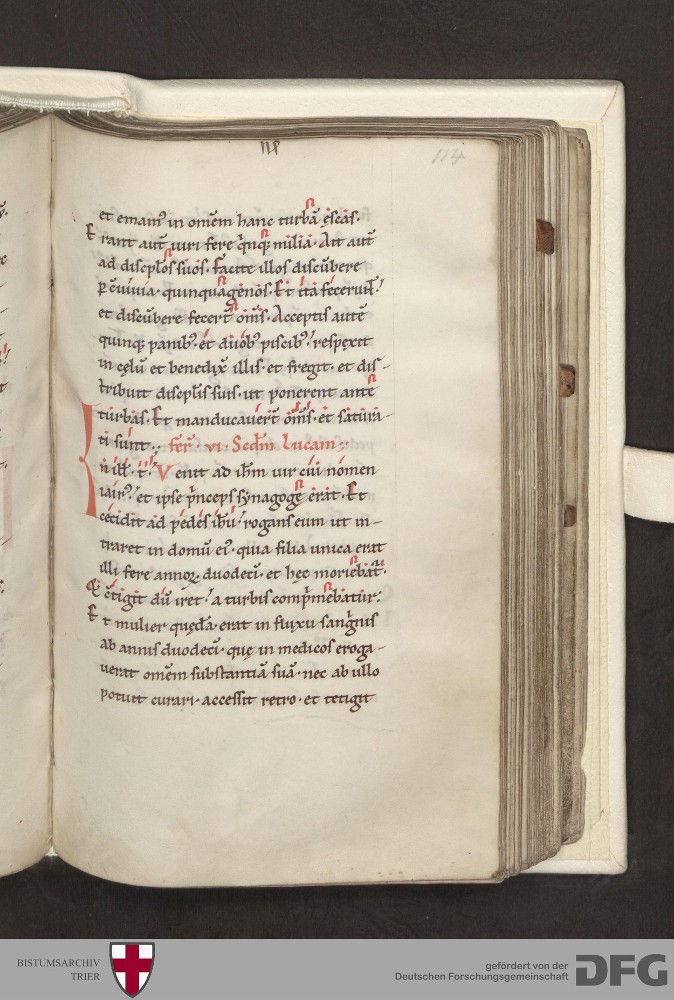 114
et emam9 in om̄em hanc turbā ęscas.
Erant aut̄ uiri fere q̄nq; milia. Ait aut̄
ad discpl̄os suos. Facite illos discūbere
p c̄uiuia. quinquagenos. Et ita feceruн̄t.
et discūbere fecer̄t om̄s. Acceptis autē
quinq; panib9. et duob9 piscib9. respęxit
in cęlū et benedix̄ illis. et fregit. et dis-
tribuit discipl̄is suis. ut ponerent ante
turbas. Et manducauer̄t om̄s. et satura-
ti sunt. fer̄. vi. Scdm̄ Lucam.
In ill̄. t̄. Venit ad ih̄m uir cui nomen
iair9. et ipse p̄nceps synagogę erat. Et
cecidit ad pedes ih̄u. rogans eum ut in-
traret in domū ei9. quia filia unica erat
illi fere annoꝝ duodeci̅. et hęc moriebat̄.
Et c̄tigit dū iret. a turbis comp̄mebatur.
Et mulier quędā erat in fluxu sang̅nis
ab annis duodeci̅. quę in medicos eroga-
uerat om̄em substantiā suā. nec ab ullo
potuit curari. accessit retro. et tetigit
BISTUMSARCHIV
TRIER
gefördert von der
Deutschen Forschungsgemeinschaft
DFG